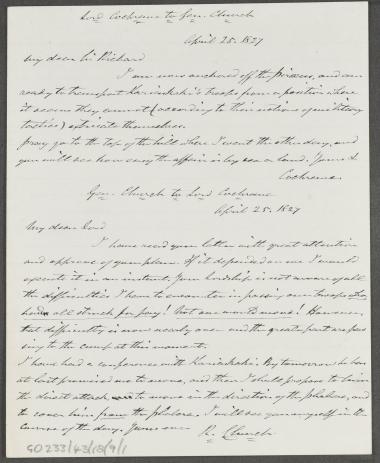 Lord Cochrane to Gen. Church
April 25. 1827
My dear Sir Richard
I am now anchored off the Piraeus, and am
ready to transport Karaiskaki's troops from a position where
it seems they cannot (according to their notions of military
tactics) extricate themselves.
Pray go to the top of the hill where I went the other day, and
you will see how easy the affair is by sea or land. Yours &
Cochrane.
Gen. Church to Lord Cochrane
April 25. 1827
My dear Lord
I have read your letter with great attention
and approve of your plan. If it depended on me I would
execute it in an instant. Your lordship is not aware of all
the difficulties I have to encounter in passing our troops
all struck for pay! Not one would move! However,
that difficulty is now nearly over and the greater part are pas
sing to the camp at this moment.
I have had a conference with Karaiskaki. By tomorrow he has
at last promised me to move, and then I shall propose to him
the direct attack to move in the direction of the phalera, and
to cover him from the phalera. I will see you myself in the
course of the day. Yours ever
R. Church
GO233/43/18/9/1